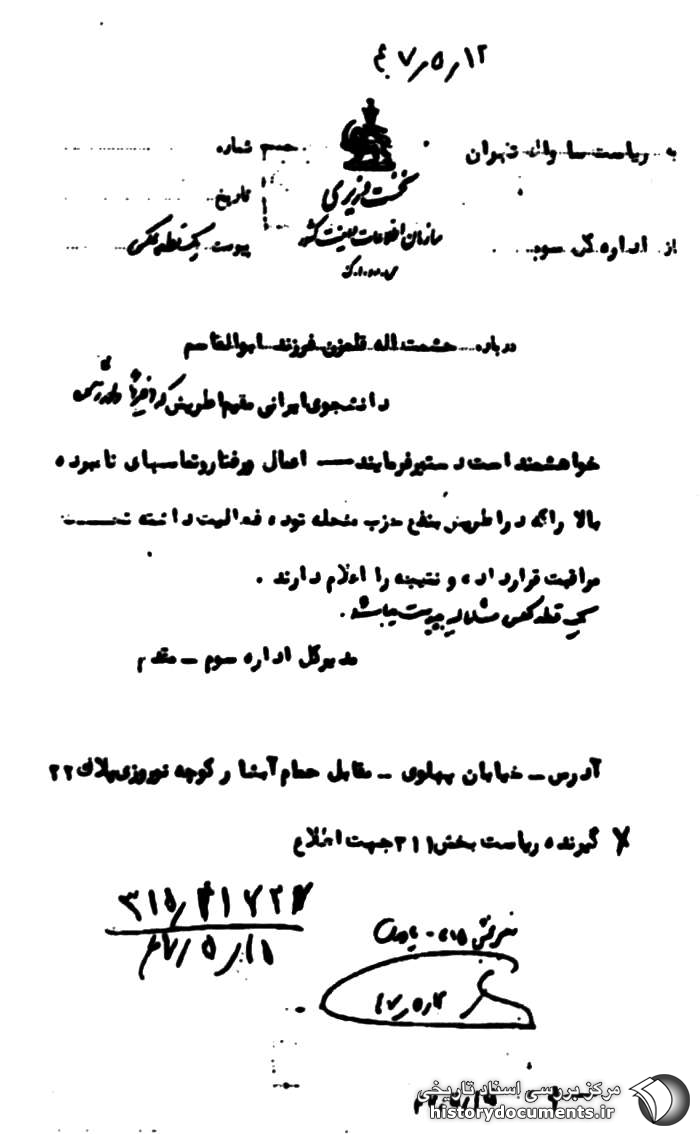 ۴۷/۵/۱۲
به ریاست ساواک تهران
شماره
نخست وزیری
تاریخ
سازمان اطلاعات و امنیت کشور
از اداره کل سوم
پیوست یک قطعه عکس
س.ا.و.ا.ک
درباره حشمت اله قلجزی فرزند ابوالقاسم
دانشجوی ایرانی مقیم اطریش که اخیراً
خواهشمند است دستور فرمایند اعمال و رفتار و تماسهای نامبرده
بالا را که در اطریش بنفع حزب منحله توده فعالیت داشته تحت
مراقبت قرار داده و نتیجه را اعلام دارند .
یک قطعه عکس مشارالیه بپیوست میباشد .
مدیرکل اداره سوم - مقدم
آدرس - خیابان پهلوی - مقابل حمام آبشار کوچه نوروزی پلاک ۲۲
گیرنده ریاست بخش ۳۱۱ جهت اطلاع
۴۷/۵/۱۱
۴۷/۵/۱۲
مرکز بررسی اسناد تاریخی
historydocuments.ir